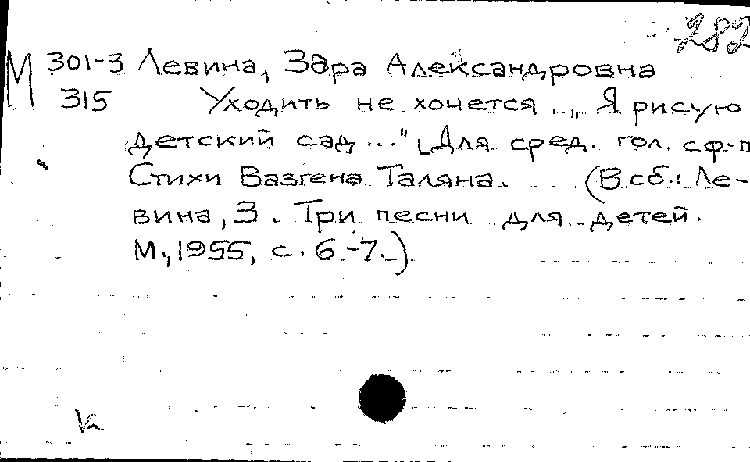 282
М 301-3 Левина, Зара Александровна
315 Уходить не хочется... „Я рисую
детский сад..." [Для сред. гол. с ф-п
Стихи Вазгена Таляна. (В сб.: Ле-
вина, З. Три песни для детей.
М., 1955, с. 6-7.)